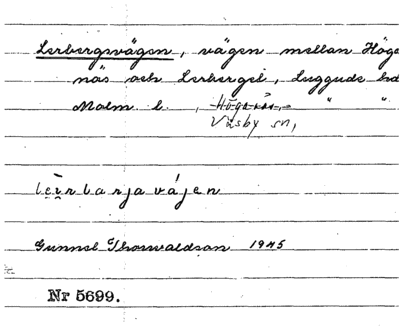 Lerbergsvägen, vägen mellan Höga
näs och Lerberget, Luggude hd
Malm. l., Höganäs, " "
Väsby sn,
lērbarjavájen
Gunnel Thorvaldson 1945
Nr 5699.